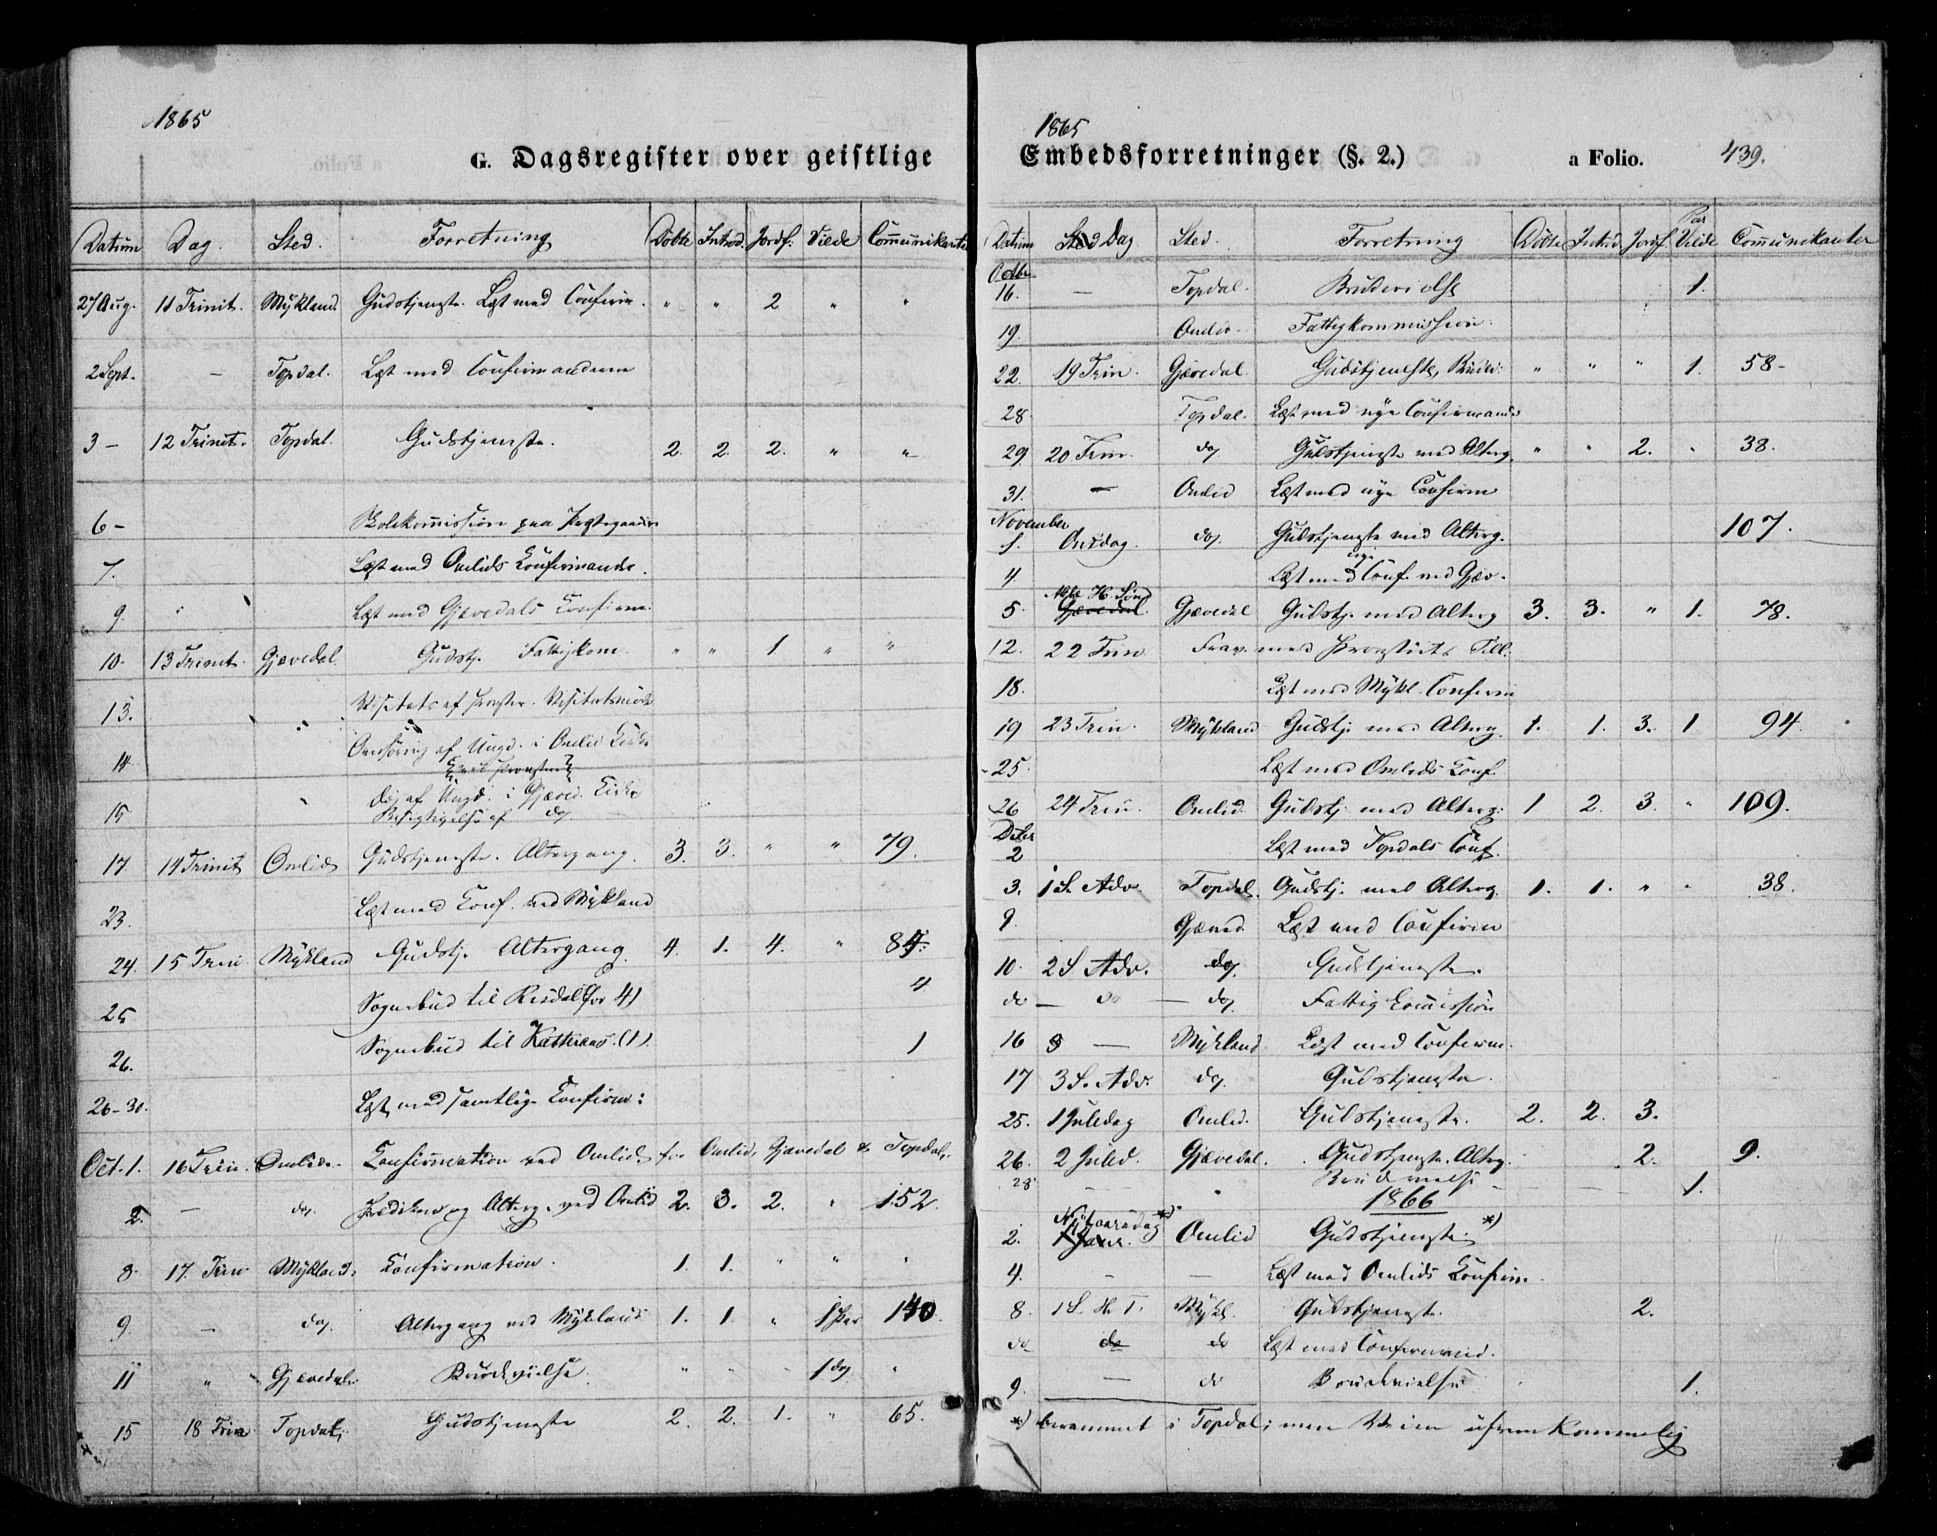 1865
G. Dagsregister over geistlige
Datum Dag. Sted. Forretning Döbte Introd. Jordf. Viede Communikanter
27 Aug. 11 Trinit. Mykland. Gudstjeneste. Læst med Confirm. " " 2 " "
2 Sept. – Topdal. Læst med Confirmanderne
3 – 12 Trinit. Topdal. Gudstjeneste. 2. 2. 2. " "
6 – Skolekommission paa Præstegaarden
7. Læst med Omlids Confirmander.
9. Læst med Gjævedals Confirm.
10. 13 Trinit. Gjævedal. Gudstj. Fattigkom. " " 1 " "
13. Visitats af Provsten.
14 af Ungd. i Omlid Kirke
15 do af Ungd. i Gjæved. Kirke
Besigtigelse af do
17 14 Trinit Omlid Gudstjeneste. Altergang. 3. 3. " " 79.
23. Læst med Conf. ved Mykland
24. 15 Trin Mykland Gudstj. Altergang. 4. 1. 4. " 84.
25 Sognebud til Risdal (for 4) 4
26. Sognebud til (1). 1
26–30. Læst med samtlige Confirm:
Oct. 1. 16 Trin. Omlid. Confirmation ved Omlid for Omlid, Gjævedal & Topdal.
2. – do. Prædiken og Alterg. ved Omlid 2. 3. 2. " 152.
8. 17. Trin Mykland. Confirmation. 1. 1. " " "
9. – do. Altergang ved Mykland 1. 1. " 1 Par 140.
11 " Gjævedal Brudevielse. " " – 1 do "
15 18 Trin Topdal. Gudstjeneste 2. 2. 1. " 65.
1865
Embedsforretninger (§. 2.) a Folio. 439.
Datum Sted Dag. Sted. Forretning Döbte Introd. Jordf. Par Viede Communikanter
Octbr
16. – Topdal. Brudevielse 1.
19. Omlid. Fattigkommission.
22. 19 Trin. Gjævedal. Gudstjeneste, Brudev. " " " 1. 58 –
28 Topdal. Læst med nye Confirmander
29. 20 Trin. do Gudstjeneste med Alterg. " " 2. " 38.
31. – Omlid Læst med nye Confirm
November
1. Onsdag. do. Gudstjeneste med Alterg. 107.
4 Læst med nye Conf. ved Gjæv.
5. Alle H. Sönd Gjævedal. Gjævedal Gudstj. med Alterg 3. 3. " 1. 78.
12. 22 Trin Frav. med Provstiets Till.
18. Læst med Mykl. Confirm
19 23 Trin. Mykland Gudstj. med Alterg. 1. 1. 3. 1 94.
25. Læst med Omlids Conf.
26 24 Trin. Omlid. Gudstj. med Alterg. 1 2. 3. " 109.
Decbr
2 Læst med Topdals Conf.
3. 1 S. Adv. Topdal. Gudstj. med Alterg. 1. 1. " " 38.
9. Gjæved. Læst med Confirm
10. 2 S Adv. do. Gudstjeneste.
do – do – do. Fattig Comission
16 – Mykland. Læst med Confirm.
17 3 S. Adv. do. Gudstjeneste.
25. 1 Juledag Omlid. Gudstjeneste. 2. 2. 3.
26. 2 Juled. Gjævedal. Gudstjeneste. Alterg. 2. 9.
28 – " Brudevielse – – – 1.
1866
2. Nytaarsdag *) 1 Janr. Omlid Gudstjeneste. *)
4. – – Læst med Omlids Confirm.
8. 1 S. H. T. Mykl. Gudstjeneste. 2.
do do do Læst med Confirmand.
9. – do Brudevielse 1.
*) berammet i Topdal; men Veien ufremkommelig